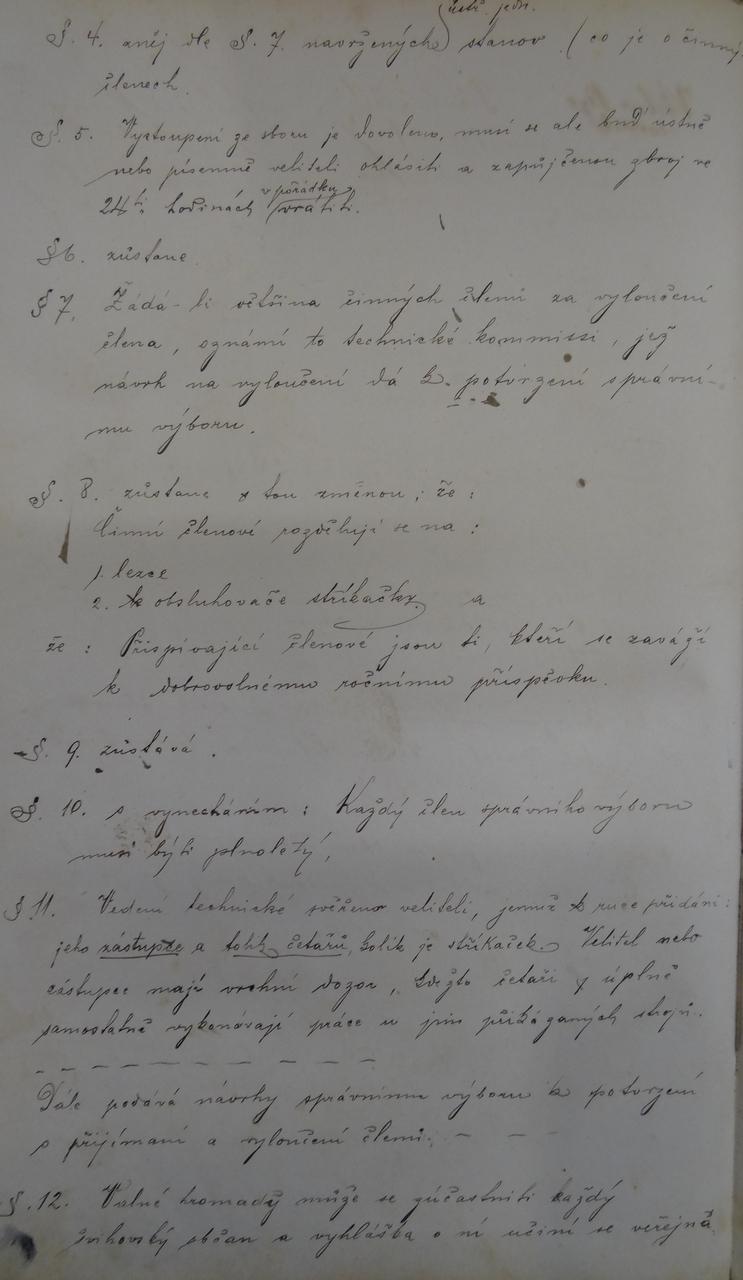 ústř. jedn.
§. 4. zněj dle §. 7. navržených stanov (co je o činných
členech.
§. 5. Vystoupení ze sboru je dovoleno, musí se ale buď ústně
nebo písemně veliteli ohlásiti a zapůjčenou zbroj ve
v pořádku
24ti hodinách vrátiti.
§ 6. zůstane
§ 7. Žádá-li většina činných členů za vyloučení
člena, oznámí to technické kommissi, jež
návrh na vyloučení dá k potvrzení správní-
mu výboru.
§. 8. zůstane s tou změnou, že:
Činní členové rozdělují se na:
1. lezce
2. obsluhovače stříkačky. a
že: Přispívající členové jsou ti, kteří se zaváží
k dobrovolnému ročnímu příspěvku.
§. 9. zůstává.
§. 10. s vynecháním: Každý člen správního výboru
musí býti plnoletý,
§ 11. Vedení technické svěřeno veliteli, jemuž k ruce přidáni:
jeho zástupce a tolik četařů, kolik je stříkaček. Velitel nebo
zástupce mají vrchní dozor, kdežto četaři úplně
samostatně vykonávají práce u jim přikázaných strojů.
Dále podává návrhy správnímu výboru k potvrzení
o přijímaní a vyloučení členů. - - -
§. 12. Valné hromady může se zúčastniti každý
švihovský občan a vyhláška o ní učiní se veřejně